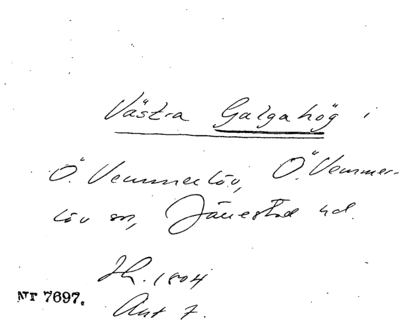 Västra Galgahög i
Ö. Vemmerlöv, Ö. Vemmer-
löv sn, Järrestad hd.
Jh. 1804
Akt 7.
Nr 7697.